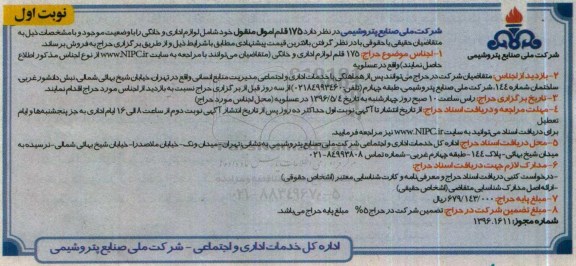 نوبت اول
شرکت ملی صنایع پتروشیمی
شرکت ملی صنایع پتروشیمی در نظر دارد ۱۷۵ قلم اموال منقول خود شامل لوازم اداری و خانگی را با وضعیت موجود و با مشخصات ذیل به
متقاضیان حقیقی یا حقوقی با در نظر گرفتن بالاترین قیمت پیشنهادی مطابق با شرایط ذیل و از طریق برگزاری حراج به فروش برساند.
۱- اجناس موضوع حراج: ۱۷۵ قلم لوازم اداری و خانگی (متقاضیان می‌توانند با مراجعه به سایت www.NIPC.ir از نوع اجناس مذکور اطلاع
حاصل نمایند) واقع در عسلویه
۲- بازدید از اجناس: متقاضیان شرکت در حراج می‌توانند پس از هماهنگی با خدمات اداری و اجتماعی مدیریت منابع انسانی واقع در تهران، خیابان شیخ بهائی شمالی، نبش دانشور غربی،
ساختمان شماره ۱۴۴، شرکت ملی صنایع پتروشیمی، طبقه چهارم (تلفن: ۰۲۱۸۴۹۹۳۴۶۰) از سه روز قبل از برگزاری حراج نسبت به بازدید از اجناس مورد حراج اقدام نمایند.
۳- تاریخ برگزاری حراج: راس ساعت ۱۰ صبح روز چهارشنبه به تاریخ ۱۳۹۶/۵/۴ در عسلویه (محل اجناس مورد حراج)
۴- مهلت مراجعه و دریافت اسناد حراج: از تاریخ انتشار تا آگهی نوبت اول حداکثر ده روز پس از تاریخ انتشار آگهی نوبت دوم از ساعت ۸ الی ۱۶ ایام اداری به جز پنجشنبه‌ها و ایام
تعطیل
برای دریافت اسناد می‌توانید به سایت www.NIPC.ir نیز مراجعه فرمایید.
۵- محل دریافت اسناد حراج: اداره کل خدمات اداری و اجتماعی شرکت ملی صنایع پتروشیمی به نشانی تهران- میدان ونک- خیابان ملاصدرا- خیابان شیخ بهائی شمالی- نرسیده به
میدان شیخ بهائی- پلاک ۱۴۴- طبقه چهارم غربی- شماره تماس ۰۲۱-۸۴۹۹۳۸۰۸
۶- مدارک لازم جهت دریافت اسناد حراج:
-درخواست کتبی دریافت اسناد حراج و معرفی‌نامه و کارت شناسایی معتبر (اشخاص حقوقی)
-ارائه اصل مدارک شناسایی متقاضی (اشخاص حقیقی)
۷- مبلغ پایه حراج: ۶۷۹/۱۴۳/۰۰۰ ریال
۸- مبلغ تضمین شرکت در حراج: تضمین شرکت در حراج ۵% مبلغ پایه حراج می‌باشد.
شماره مجوز: ۱۳۹۶.۱۶۱۱
اداره کل خدمات اداری و اجتماعی - شرکت ملی صنایع پتروشیمی